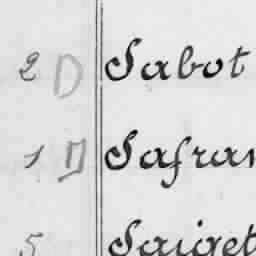 2 D Sabot
1 D Safran
5 Saiget